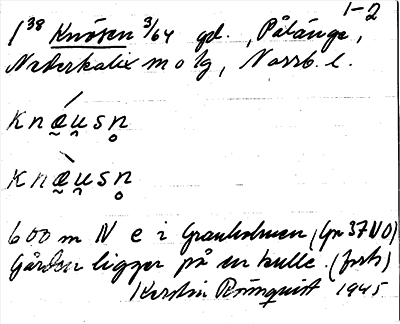 1-2
1³⁸ Knösen 3/64 gd., Pålänge,
Nederkalix m o tg, Norrb. l.
knæ̰u̯sn̥
knæ̰u̯sn̥
600 m N e i (gr 37 V 0)
Gården ligger på en kulle. (forts)
Kerstin Rönnquist 1945